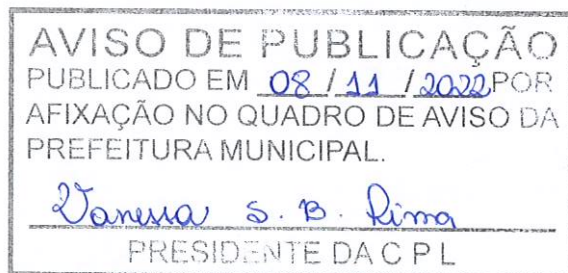 AVISO DE PUBLICAÇÃO
PUBLICADO EM 08 / 11 / 2022 POR
AFIXAÇÃO NO QUADRO DE AVISO DA
PREFEITURA MUNICIPAL.
Vanessa S. B. Lima
PRESIDENTE DA C P L